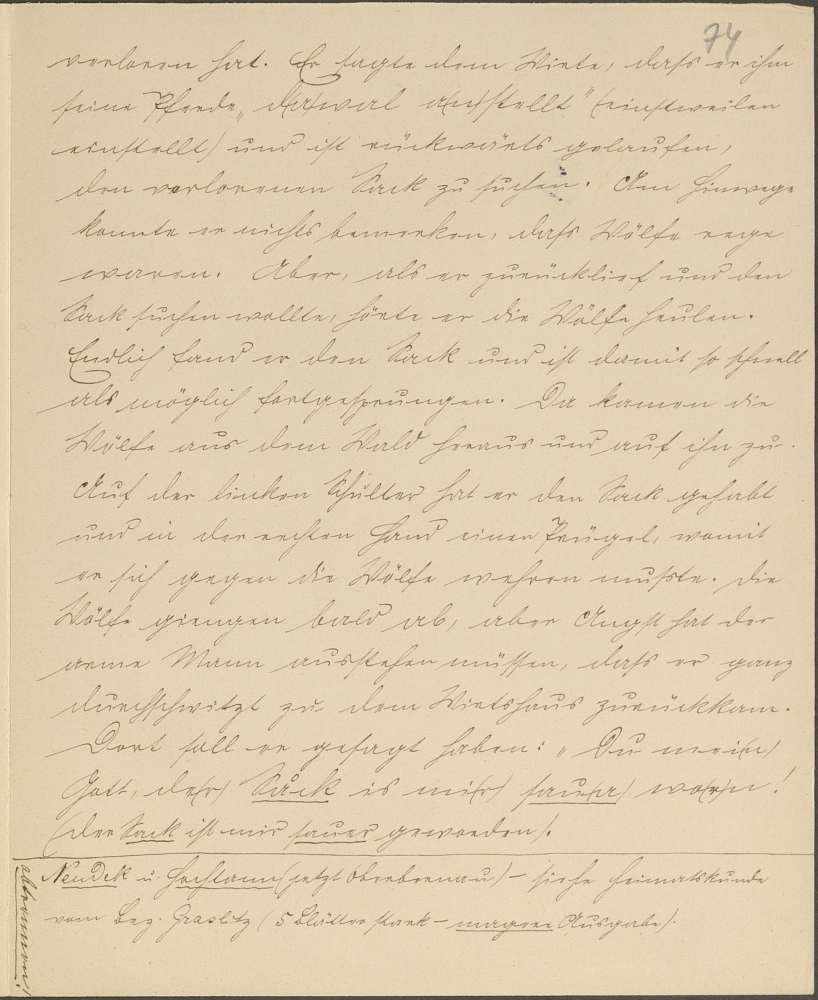 74
verloren hat. Er sagte dem Wirte, dass er ihm
seine Pferde „ d(a)wal a(n)stellt" (einstweilen
einstellt) und ist rückwärts gelaufen,
den verlorenen Sack zu suchen. Am Hinwege
konnte er nichts bemerken, dass Wölfe rege
waren. Aber, als er zurücklief und den
Sack suchen wollte, hörte er die Wölfe heulen.
Endlich fand er den Sack und ist damit so schnell
als möglich fortgesprungen. Da kamen die
Wölfe aus dem Wald heraus und auf ihn zu.
Auf der linken Schulter hat er den Sack gehabt
und in der rechten Hand einen Prügel, womit
er sich gegen die Wölfe wehren musste. Die
Wölfe giengen bald ab, aber Angst hat der
arme Mann ausstehen müssen, dass er ganz
durchschwitzt zu dem Wirtshaus zurückkam.
Dort soll er gesagt haben: „ Du mei(n)
Gott, de(r) Såck is mi(r) sau(a) wo(r)n!
(der Sack ist mir sauer geworden).
Neudek u. Hochtann (jetzt Oberbrenau) – siehe Heimatskunde
vom Bez. Graslitz (5 Blätter stark – magere Ausgabe).